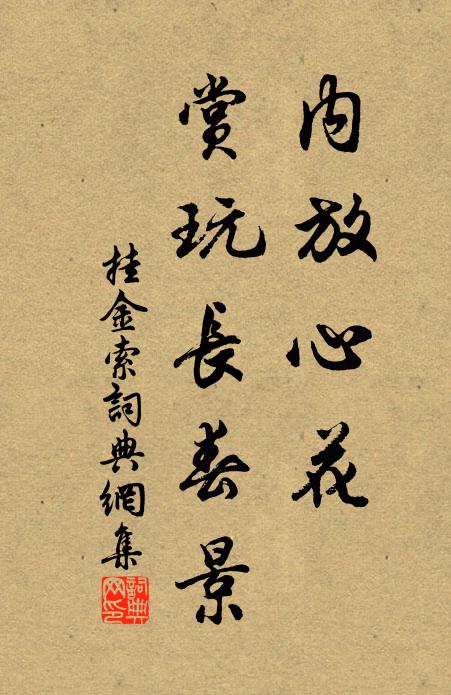 内放心花
赏玩長春景
挂金索詞典網集
詞典网印